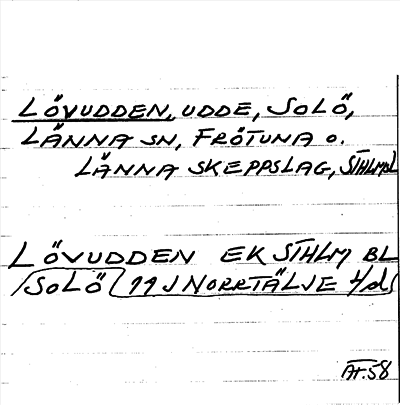 LÖVUDDEN, UDDE, SOLÖ,
LÄNNA SN, FRÖTUNA O.
LÄNNA SKEPPSLAG, STHLM
LÖVUDDEN EK STHLM BL
SOLÖ 11 J NORRTÄLJE
AF.58